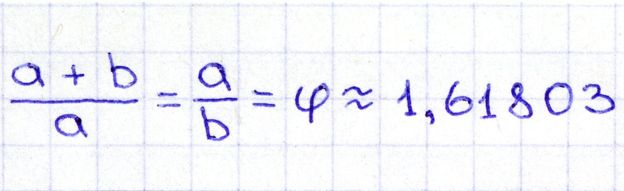 (a + b)/a = a/b = φ ≈ 1,61803